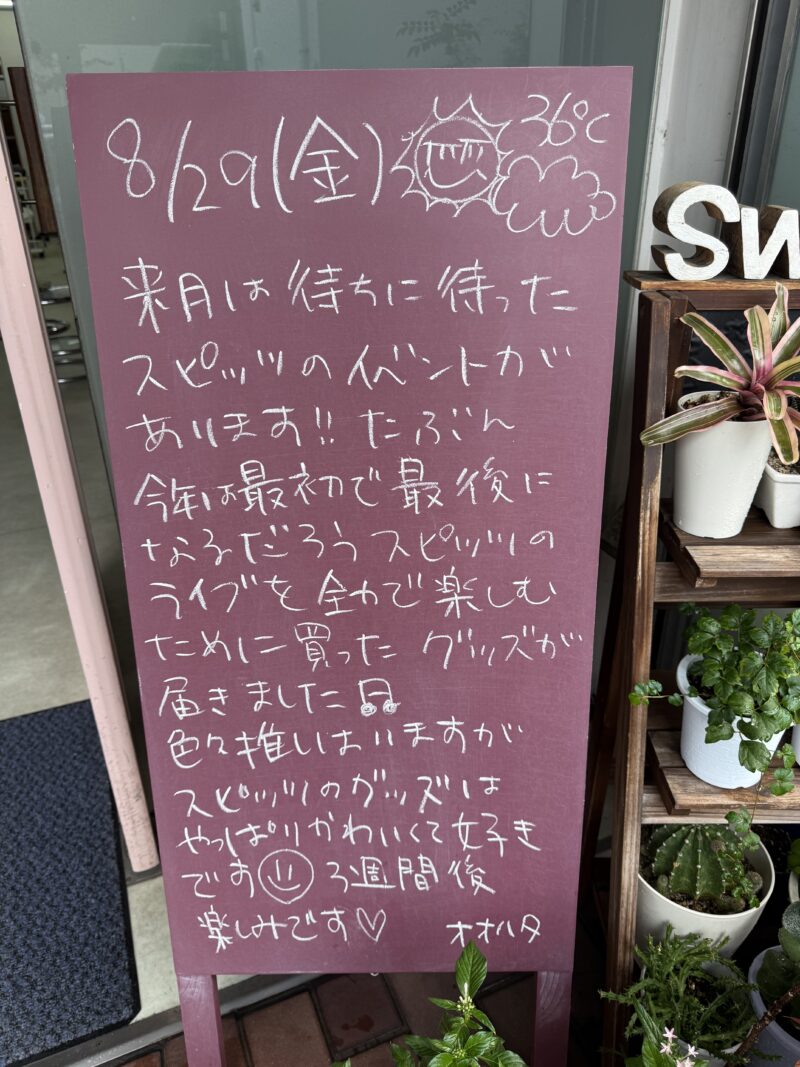 8/29(金) 36℃
来月は待ちに待った
スピッツのイベントが
あります!! たぶん
今年は最初で最後に
なるだろうスピッツの
ライブを全力で楽しむ
ために買ったグッズが
届きました♫
色々推しはいますが
スピッツのグッズは
やっぱりかわいくて好き
です☺ 3週間後
楽しみです♡ オオハタ
SW